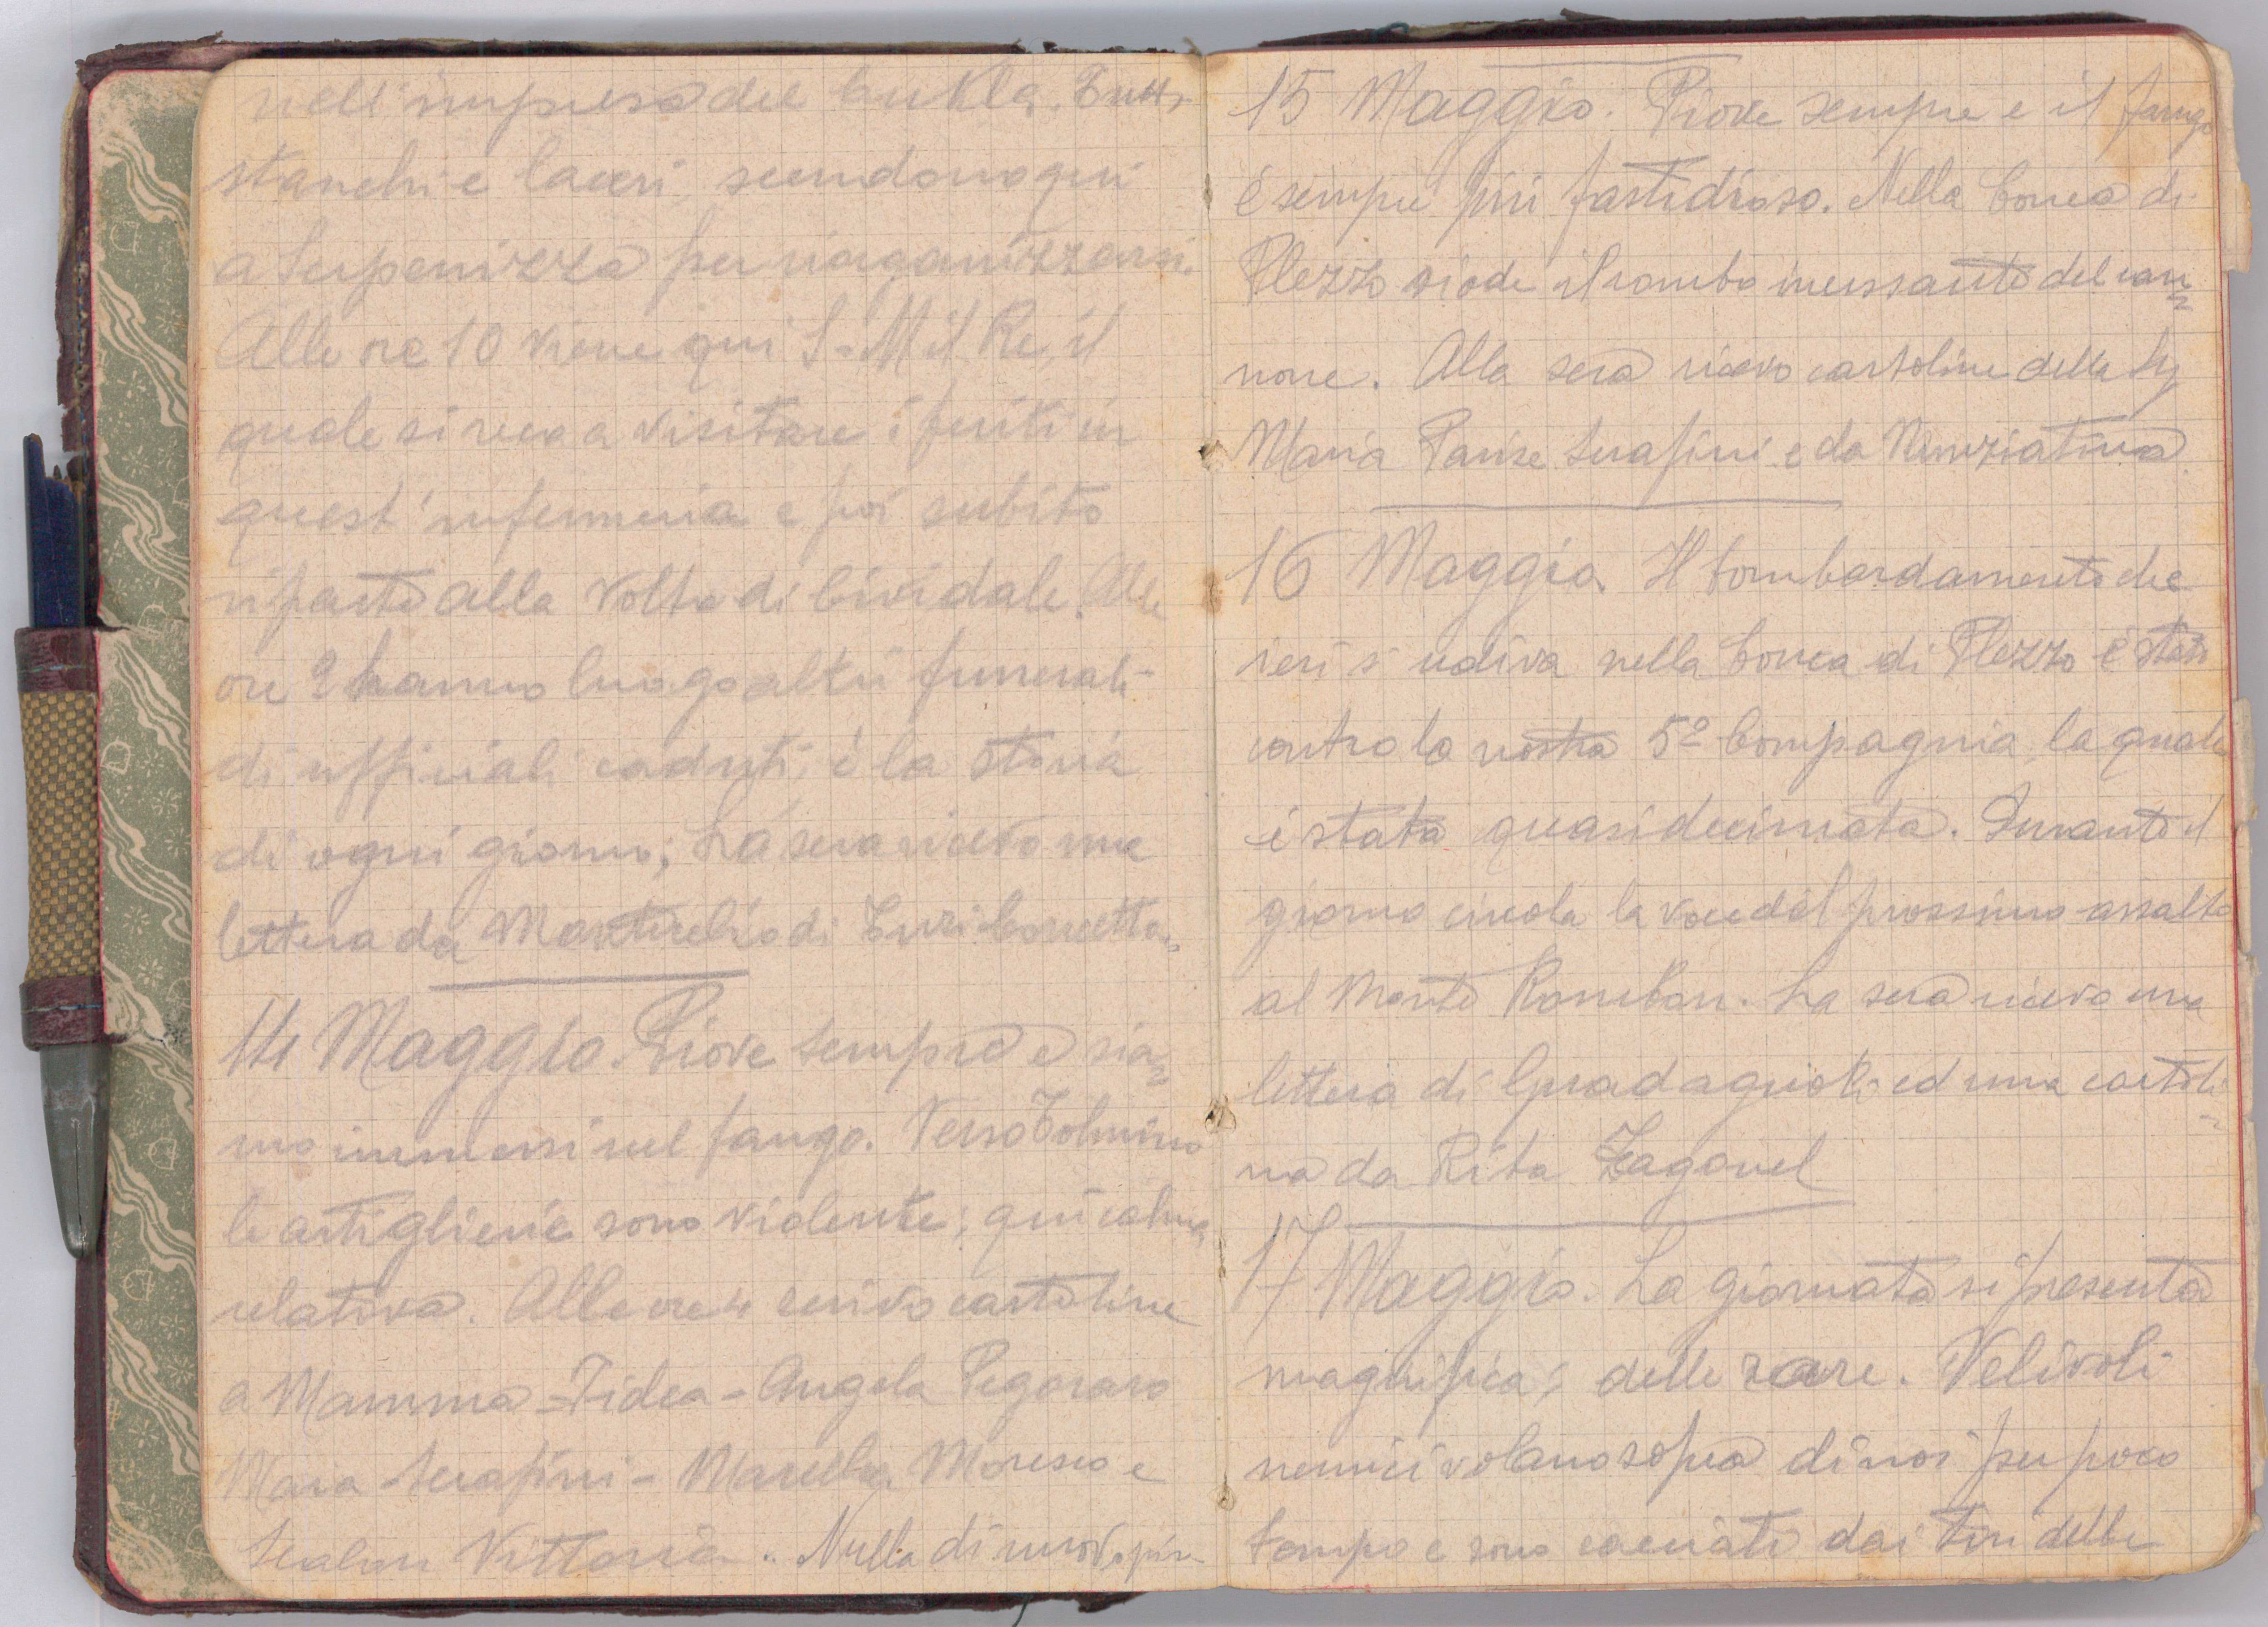 nell'impresa del Cukla. Tutti
stanchi e laceri, scendono qui
a Serpenizza per riorganizzarsi.
Alle ore 10 viene qui S. M il Re, il
quale si reca a visitare i feriti in
quest'infermeria e poi subito
riparte alla volta di Cividale. Alle
ore 2 hanno luogo altri funerali
di ufficiali caduti; è la storia
di ogni giorno; La sera ricevo una
lettera da di Turi
14 Maggio. Piove sempre e sia=
mo immersi nel fango. Verso Tolmino
le artiglierie sono violente; qui calma
relativa. Alle ore 4 scrivo cartoline
a Mamma - Fidea - Angela Pegoraro
Maria Serafini - Marcella Moresco e
Vittoria. Nulla di nuovo
15 Maggio. Piove sempre e il fango
è sempre più fastidioso. Nella Conca di
Plezzo si ode il rombo incessante del can=
none. Alla sera ricevo cartoline della Sig
Maria Serafini e da Nunziatina.
16 Maggio. Il bombardamento che
ieri s'udiva nella Conca di Plezzo è stato
contro la nostra 5ª Compagnia, la quale
è stata quasi decimata. Durante il
giorno circola la voce del prossimo assalto
al Monte Rombon. La sera ricevo una
lettera di Guadagnoli ed una cartoli=
na da Rita Zagonel
17 Maggio. La giornata si presenta
magnifica; delle rare. Velivoli
nemici volano sopra di noi per poco
tempo e sono cacciati dai tiri delle